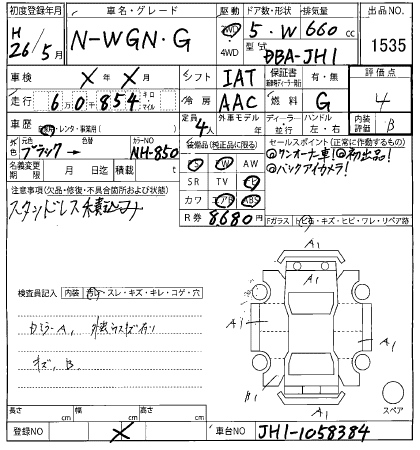 初度登録年月 車名・グレード 駆動 ドア数・形状 排気量 出品NO
H 26/5月 N-WGN・G 2WD 4WD 5・W 660 cc 1535
型式 DBA-JH1
車検 X年 X月 シフト IAT 保証書 有・無 評価点
走行 6万0千854 キロ マイル 冷房 AAC 燃料 G 4
車歴 自家用・レンタ・事業用( ) 定員 4人 外車モデル 年 ディーラー 並行 ハンドル 左・右 内装評価 B
外色 元色 ブラック→ 色替 カラーNO NH-850 装備品(純正品に限る) セールスポイント(正常に作動するもの)
名義変更期限 月 日迄 積載 t PS PW AW ワンオーナー車! 初出品!
SR TV バックアイカメラ!
注意事項(欠品・修復・不具合箇所および状態) カワ エアB ABS
スタンドレス R券 8,680円 Fガラス トビ石・キズ・ヒビ・ワレ・リペア跡
A1
検査員記入 内装 スレ・キズ・キレ・コゲ・穴 A1
A1 A1
キズ、B B1 A1
A1 スペア
長さ cm 幅 cm 高さ cm
登録NO X 車台NO JH1-1058384